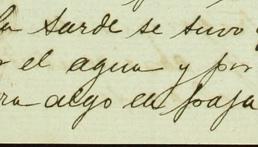 la tarde se tuvo q
r el agua y por
ra algo en paja